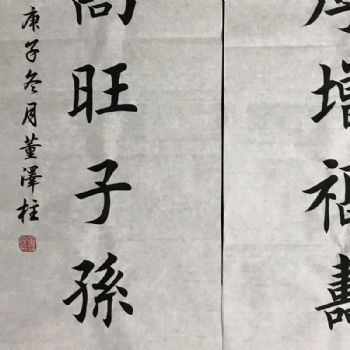 增福壽
旺子孫
庚子冬月董澤柱